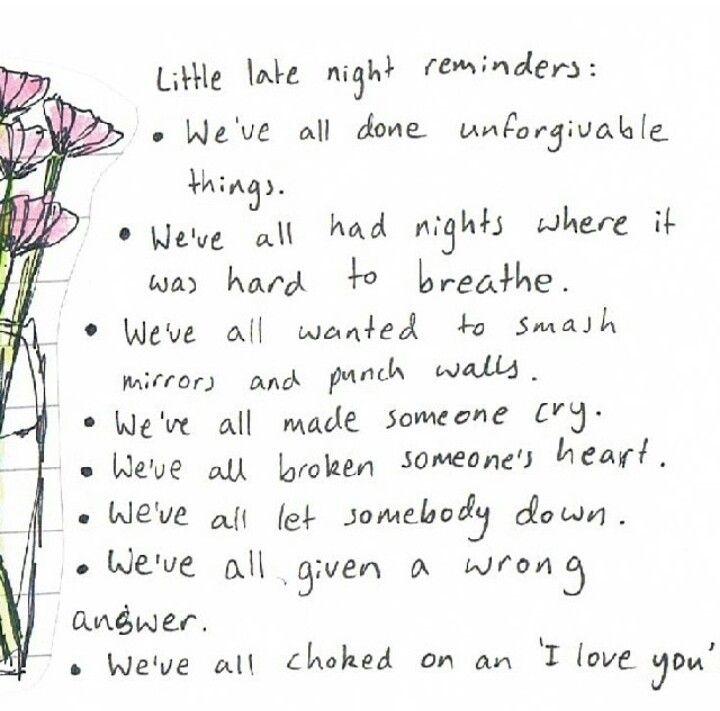 Little late night reminders:
• We've all done unforgivable
things.
• We've all had nights where it
was hard to breathe.
• We've all wanted to smash
mirrors and punch walls.
• We've all made someone cry.
• We've all broken someone's heart.
• We've all let somebody down.
• We've all given a wrong
answer.
• We've all choked on an 'I love you'